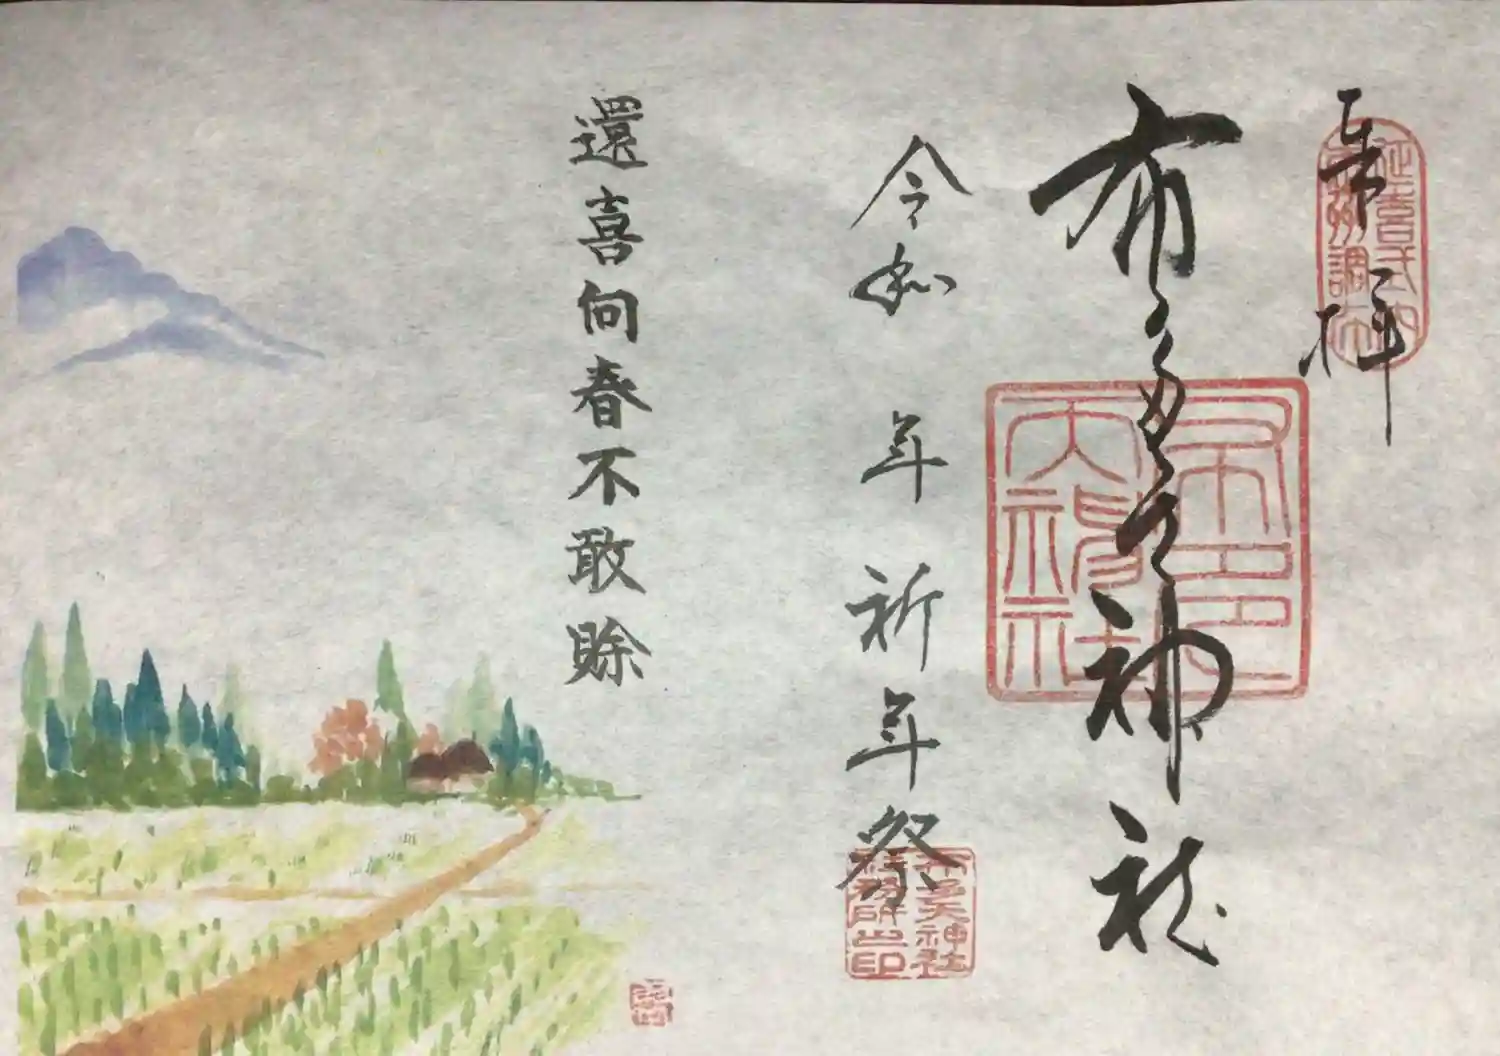 奉拝
延喜式内
布多天神社
布多天神社
令和 年 祈年祭
布多天神社
社務所之印
還喜向春不敢賒